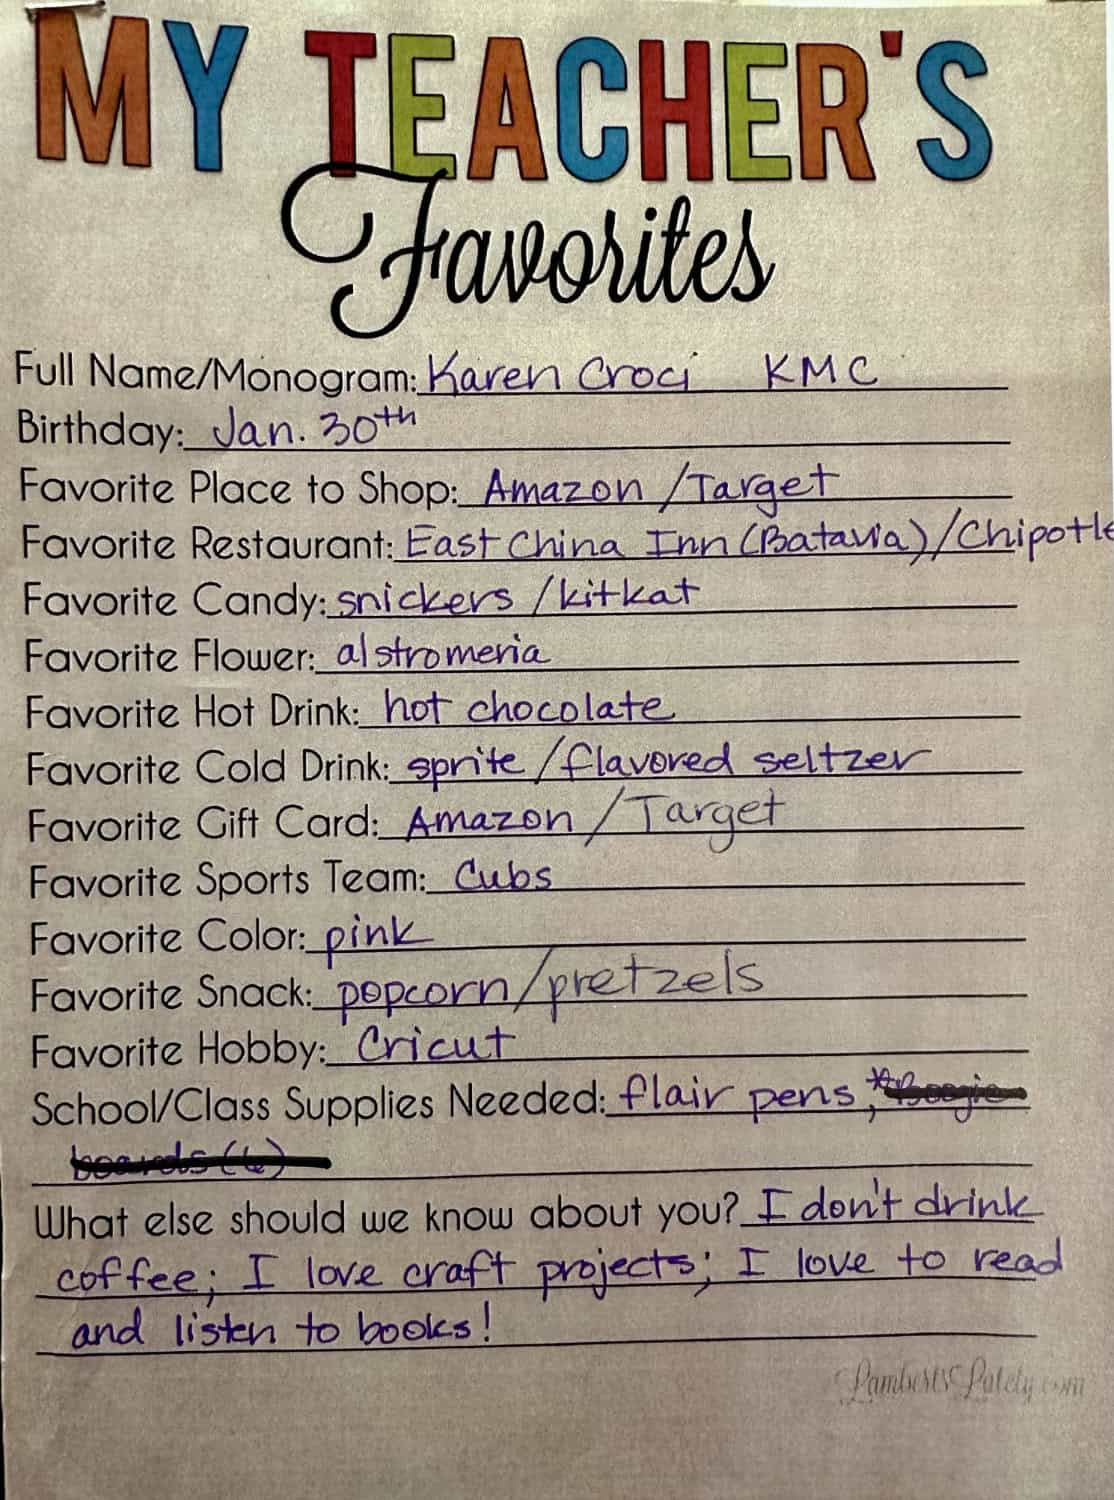 MY TEACHER'S
Favorites
Full Name/Monogram: Karen Croci KMC
Birthday: Jan. 30th
Favorite Place to Shop: Amazon /Target
Favorite Restaurant: East China Inn (Batavia)/Chipotle
Favorite Candy: snickers /kitkat
Favorite Flower: alstromeria
Favorite Hot Drink: hot chocolate
Favorite Cold Drink: sprite /flavored seltzer
Favorite Gift Card: Amazon /Target
Favorite Sports Team: Cubs
Favorite Color: pink
Favorite Snack: popcorn/pretzels
Favorite Hobby: Cricut
School/Class Supplies Needed: flair pens, *Boogie
boards (6)
What else should we know about you? I don't drink
coffee; I love craft projects; I love to read
and listen to books!
Lamberts Lately.com